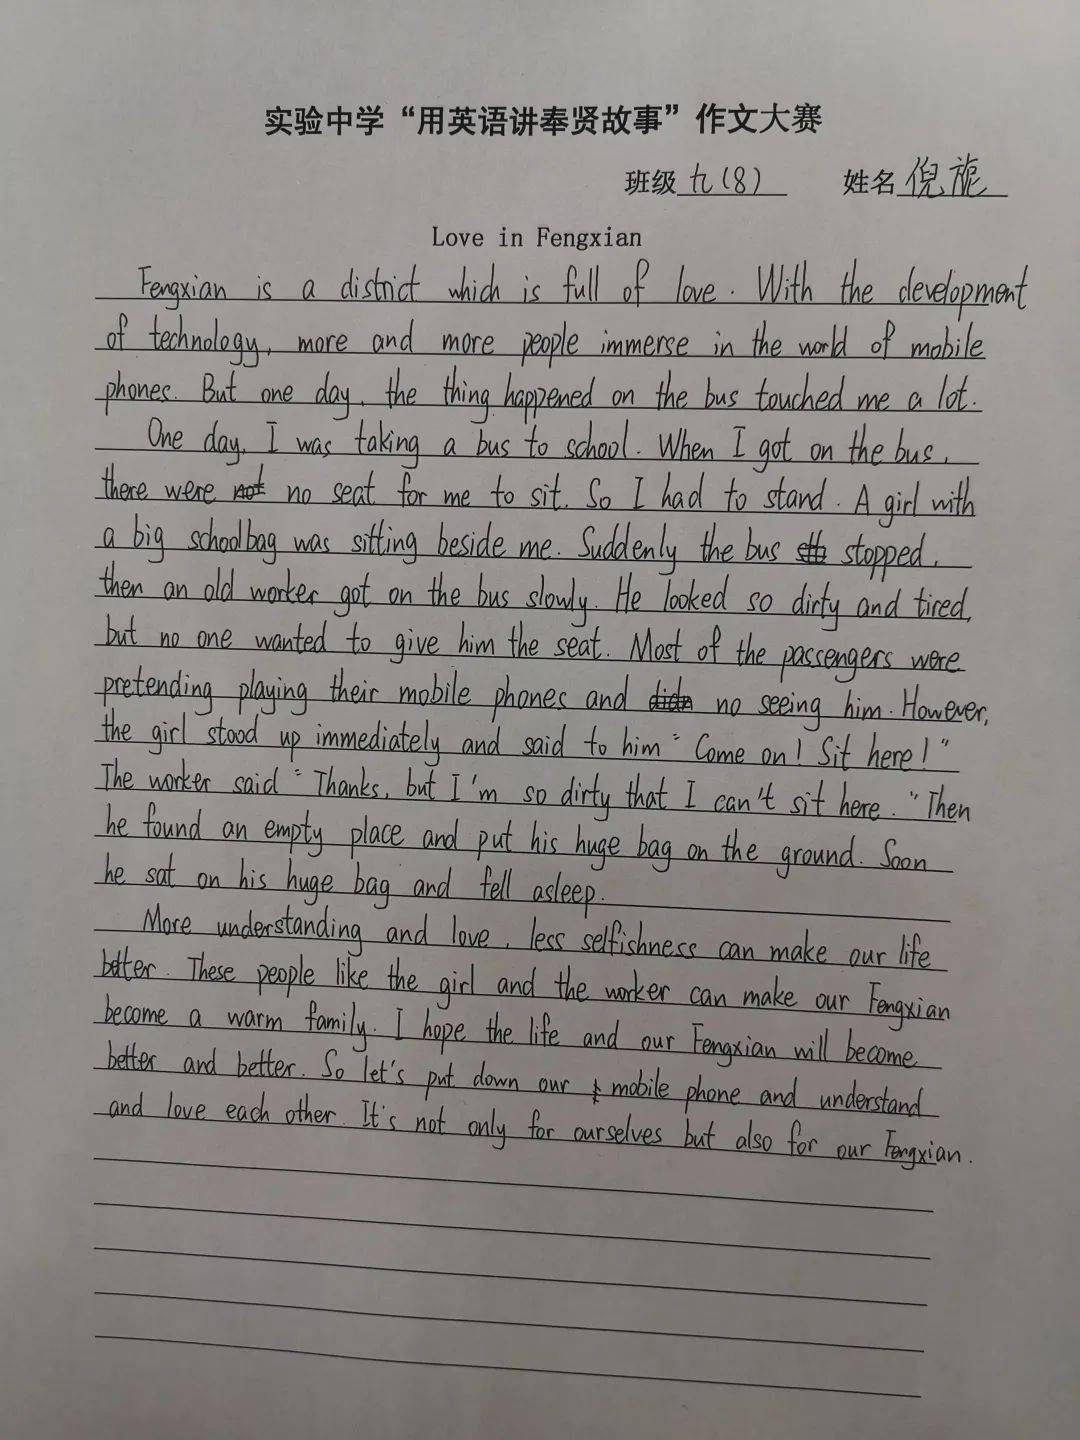 实验中学“用英语讲奉贤故事”作文大赛
班级 九(8) 姓名 倪旎
Love in Fengxian
Fengxian is a district which is full of love. With the development
of technology, more and more people immerse in the world of mobile
phones. But one day, the thing happened on the bus touched me a lot.
One day, I was taking a bus to school. When I got on the bus,
there were no seat for me to sit. So I had to stand. A girl with
a big schoolbag was sitting beside me. Suddenly the bus stopped,
then an old worker got on the bus slowly. He looked so dirty and tired,
but no one wanted to give him the seat. Most of the passengers were
pretending playing their mobile phones and no seeing him. However,
the girl stood up immediately and said to him “Come on! Sit here!”
The worker said “Thanks, but I'm so dirty that I can't sit here.” Then
he found an empty place and put his huge bag on the ground. Soon
he sat on his huge bag and fell asleep.
More understanding and love, less selfishness can make our life
better. These people like the girl and the worker can make our Fengxian
become a warm family. I hope the life and our Fengxian will become
better and better. So let's put down our mobile phone and understand
and love each other. It's not only for ourselves but also for our Fengxian.